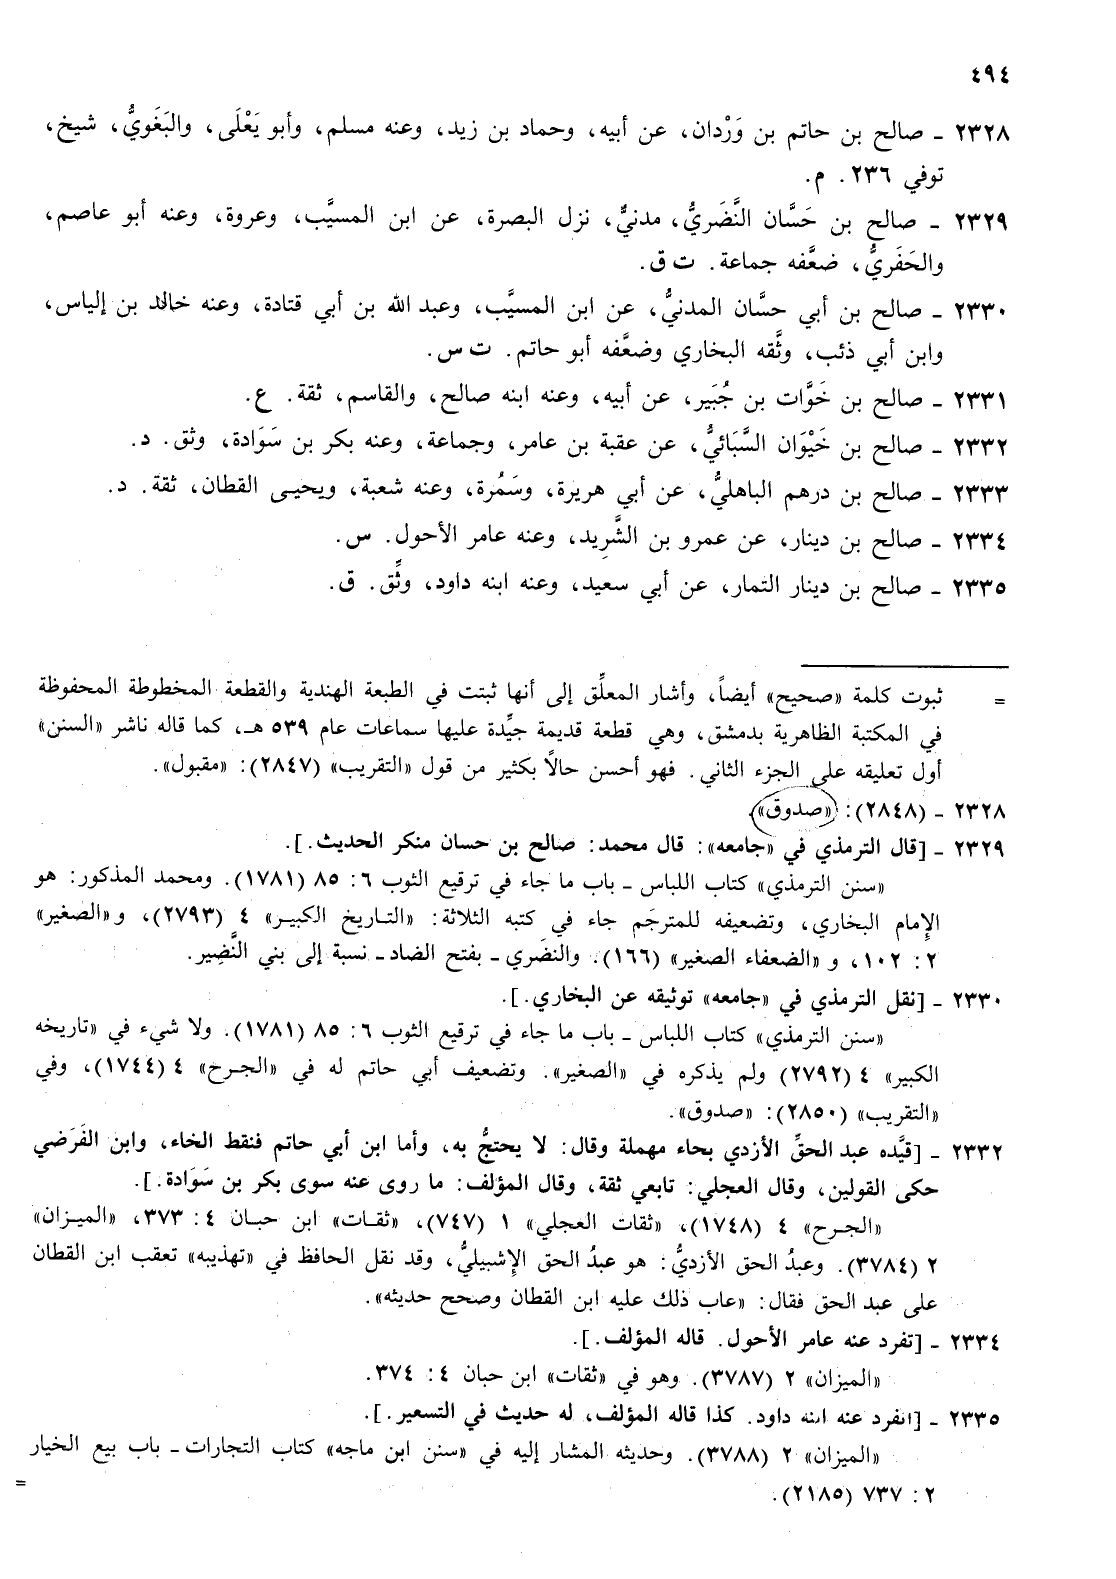 ٤٩٤
٢٣٢٨ ـ صالح بن حاتم بن وَرْدان، عن أبيه، وحماد بن زيد، وعنه مسلم، وأبو يَعْلَى، والبَغَويُّ، شيخ،
توفي ٢٣٦. م.
٢٣٢٩ ـ صالح بن حَسَّان النَّضَريُّ، مدنيٌّ، نزل البصرة، عن ابن المسيَّب، وعروة، وعنه أبو عاصم،
والحَفَريُّ، ضعَّفه جماعة. ت ق.
٢٣٣٠ ـ صالح بن أبي حسَّان المدنيُّ، عن ابن المسيَّب، وعبد الله بن أبي قتادة، وعنه خالد بن إلياس،
وابن أبي ذئب، وثَّقه البخاري وضعَّفه أبو حاتم. ت س.
٢٣٣١ ـ صالح بن خَوَّات بن جُبَير، عن أبيه، وعنه ابنه صالح، والقاسم، ثقة. ع.
٢٣٣٢ ـ صالح بن خَيْوَان السَّبَائيُّ، عن عقبة بن عامر، وجماعة، وعنه بكر بن سَوَادة، وثق. د.
٢٣٣٣ ـ صالح بن درهم الباهليُّ، عن أبي هريرة، وسَمُرة، وعنه شعبة، ويحيى القطان، ثقة. د.
٢٣٣٤ ـ صالح بن دينار، عن عمرو بن الشَّرِيد، وعنه عامر الأحول. س.
٢٣٣٥ ـ صالح بن دينار التمار، عن أبي سعيد، وعنه ابنه داود، وثِّق. ق.
= ثبوت كلمة «صحيح» أيضاً، وأشار المعلِّق إلى أنها ثبتت في الطبعة الهندية والقطعة المخطوطة المحفوظة
في المكتبة الظاهرية بدمشق، وهي قطعة قديمة جيِّدة عليها سماعات عام ٥٣٩ هـ، كما قاله ناشر «السنن»
أول تعليقه على الجزء الثاني. فهو أحسن حالاً بكثير من قول «التقريب» (٢٨٤٧): «مقبول».
٢٣٢٨ ـ (٢٨٤٨): «صدوق».
٢٣٢٩ ـ [قال الترمذي في «جامعه»: قال محمد: صالح بن حسان منكر الحديث.].
«سنن الترمذي» كتاب اللباس ـ باب ما جاء في ترقيع الثوب ٦: ٨٥ (١٧٨١). ومحمد المذكور: هو
الإمام البخاري، وتضعيفه للمترجَم جاء في كتبه الثلاثة: «التاريخ الكبير» ٤ (٢٧٩٣)، و«الصغير»
٢: ١٠٢، و«الضعفاء الصغير» (١٦٦). والنضَري ـ بفتح الضاد ـ نسبة إلى بني النَّضِير.
٢٣٣٠ ـ [نقل الترمذي في «جامعه» توثيقه عن البخاري.].
«سنن الترمذي» كتاب اللباس ـ باب ما جاء في ترقيع الثوب ٦: ٨٥ (١٧٨١). ولا شيء في «تاريخه
الكبير» ٤ (٢٧٩٢) ولم يذكره في «الصغير». وتضعيف أبي حاتم له في «الجرح» ٤ (١٧٤٤)، وفي
«التقريب» (٢٨٥٠): «صدوق».
٢٣٣٢ ـ [قيَّده عبد الحقِّ الأزدي بحاء مهملة وقال: لا يحتجُّ به، وأما ابن أبي حاتم فنقط الخاء، وابن الفَرَضي
حكى القولين، وقال العجلي: تابعي ثقة، وقال المؤلف: ما روى عنه سوى بكر بن سَوَادة.].
«الجرح» ٤ (١٧٤٨)، «ثقات العجلي» ١ (٧٤٧)، «ثقات» ابن حبان ٤: ٣٧٣، «الميزان»
٢ (٣٧٨٤). وعبدُ الحق الأزديُّ: هو عبدُ الحق الإشبيليُّ، وقد نقل الحافظ في «تهذيبه» تعقب ابن القطان
على عبد الحق فقال: «عاب ذلك عليه ابن القطان وصحح حديثه».
٢٣٣٤ ـ [تفرد عنه عامر الأحول. قاله المؤلف.].
«الميزان» ٢ (٣٧٨٧). وهو في «ثقات» ابن حبان ٤: ٣٧٤.
٢٣٣٥ ـ [انفرد عنه ابنه داود. كذا قاله المؤلف، له حديث في التسعير.].
«الميزان» ٢ (٣٧٨٨). وحديثه المشار إليه في «سنن ابن ماجه» كتاب التجارات ـ باب بيع الخيار
٢: ٧٣٧ (٢١٨٥). =